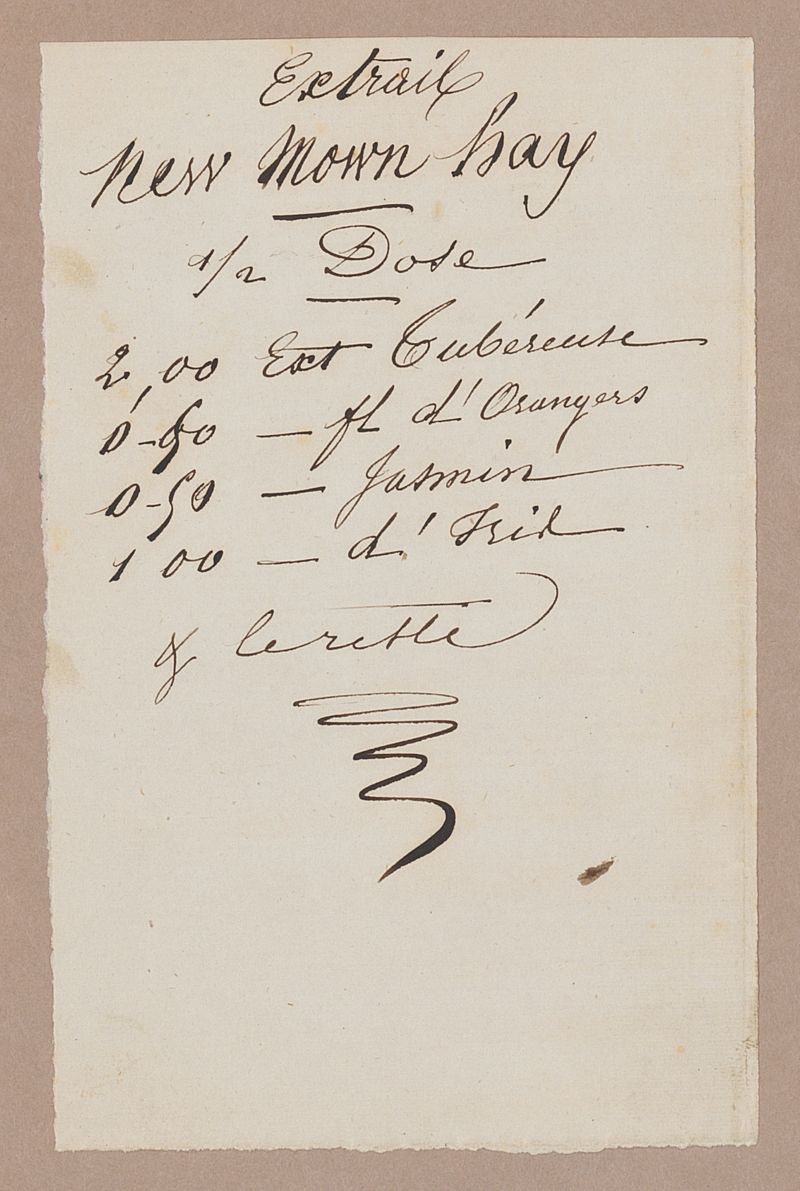 Extrait
New Mown hay
1/2 Dose
2,00 Ext Tubéreuse
0-50 — fl d'Orangers
0-50 — Jasmin
1 00 — d'Iris
& le reste